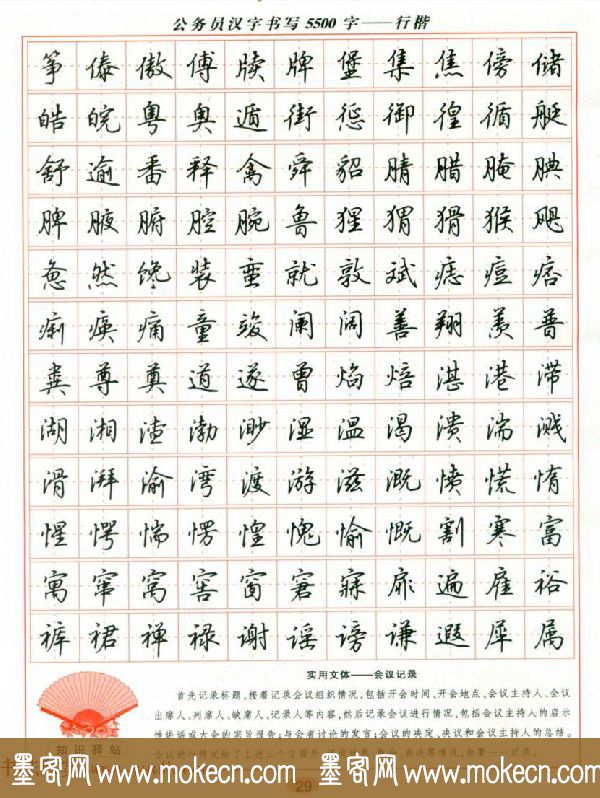 公务员汉字书写5500字——行楷
筝 傣 傲 傅 牍 牌 堡 集 焦 傍 储
皓 皖 粤 奥 遁 街 惩 御 徨 循 艇
舒 逾 番 释 禽 舜 貂 腈 腊 腌 腆
脾 腋 腑 腔 腕 鲁 猩 猬 猾 猴 飓
惫 然 馋 装 蛮 就 敦 斌 痣 痘 痞
痢 痪 痛 童 竣 阑 阔 善 翔 羡 普
粪 尊 奠 道 遂 曾 焰 焙 湛 港 滞
湖 湘 渣 渤 渺 湿 温 渴 溃 湍 溅
滑 湃 渝 湾 渡 游 滋 溉 愤 慌 惰
惺 愕 惴 愣 惶 愧 愉 慨 割 寒 富
寓 窜 窝 窖 窗 窘 寐 扉 遍 雇 裕
裤 裙 禅 禄 谢 谣 谤 谦 遐 犀 属
实用文体——会议记录
首先记录标题,接着记录会议组织情况,包括开会时间、开会地点、会议主持人、会议
出席人、列席人、缺席人、记录人等内容,然后记录会议进行情况,包括会议主持人的启示
性讲话或大会的宗旨报告;与会者讨论的发言;会议的决定、决议和会议主持人的总结。
知识驿站
会议进行情况除了上述三个方面外,
29
墨客网 www.mokecn.com 墨客网 www.mokecn.com